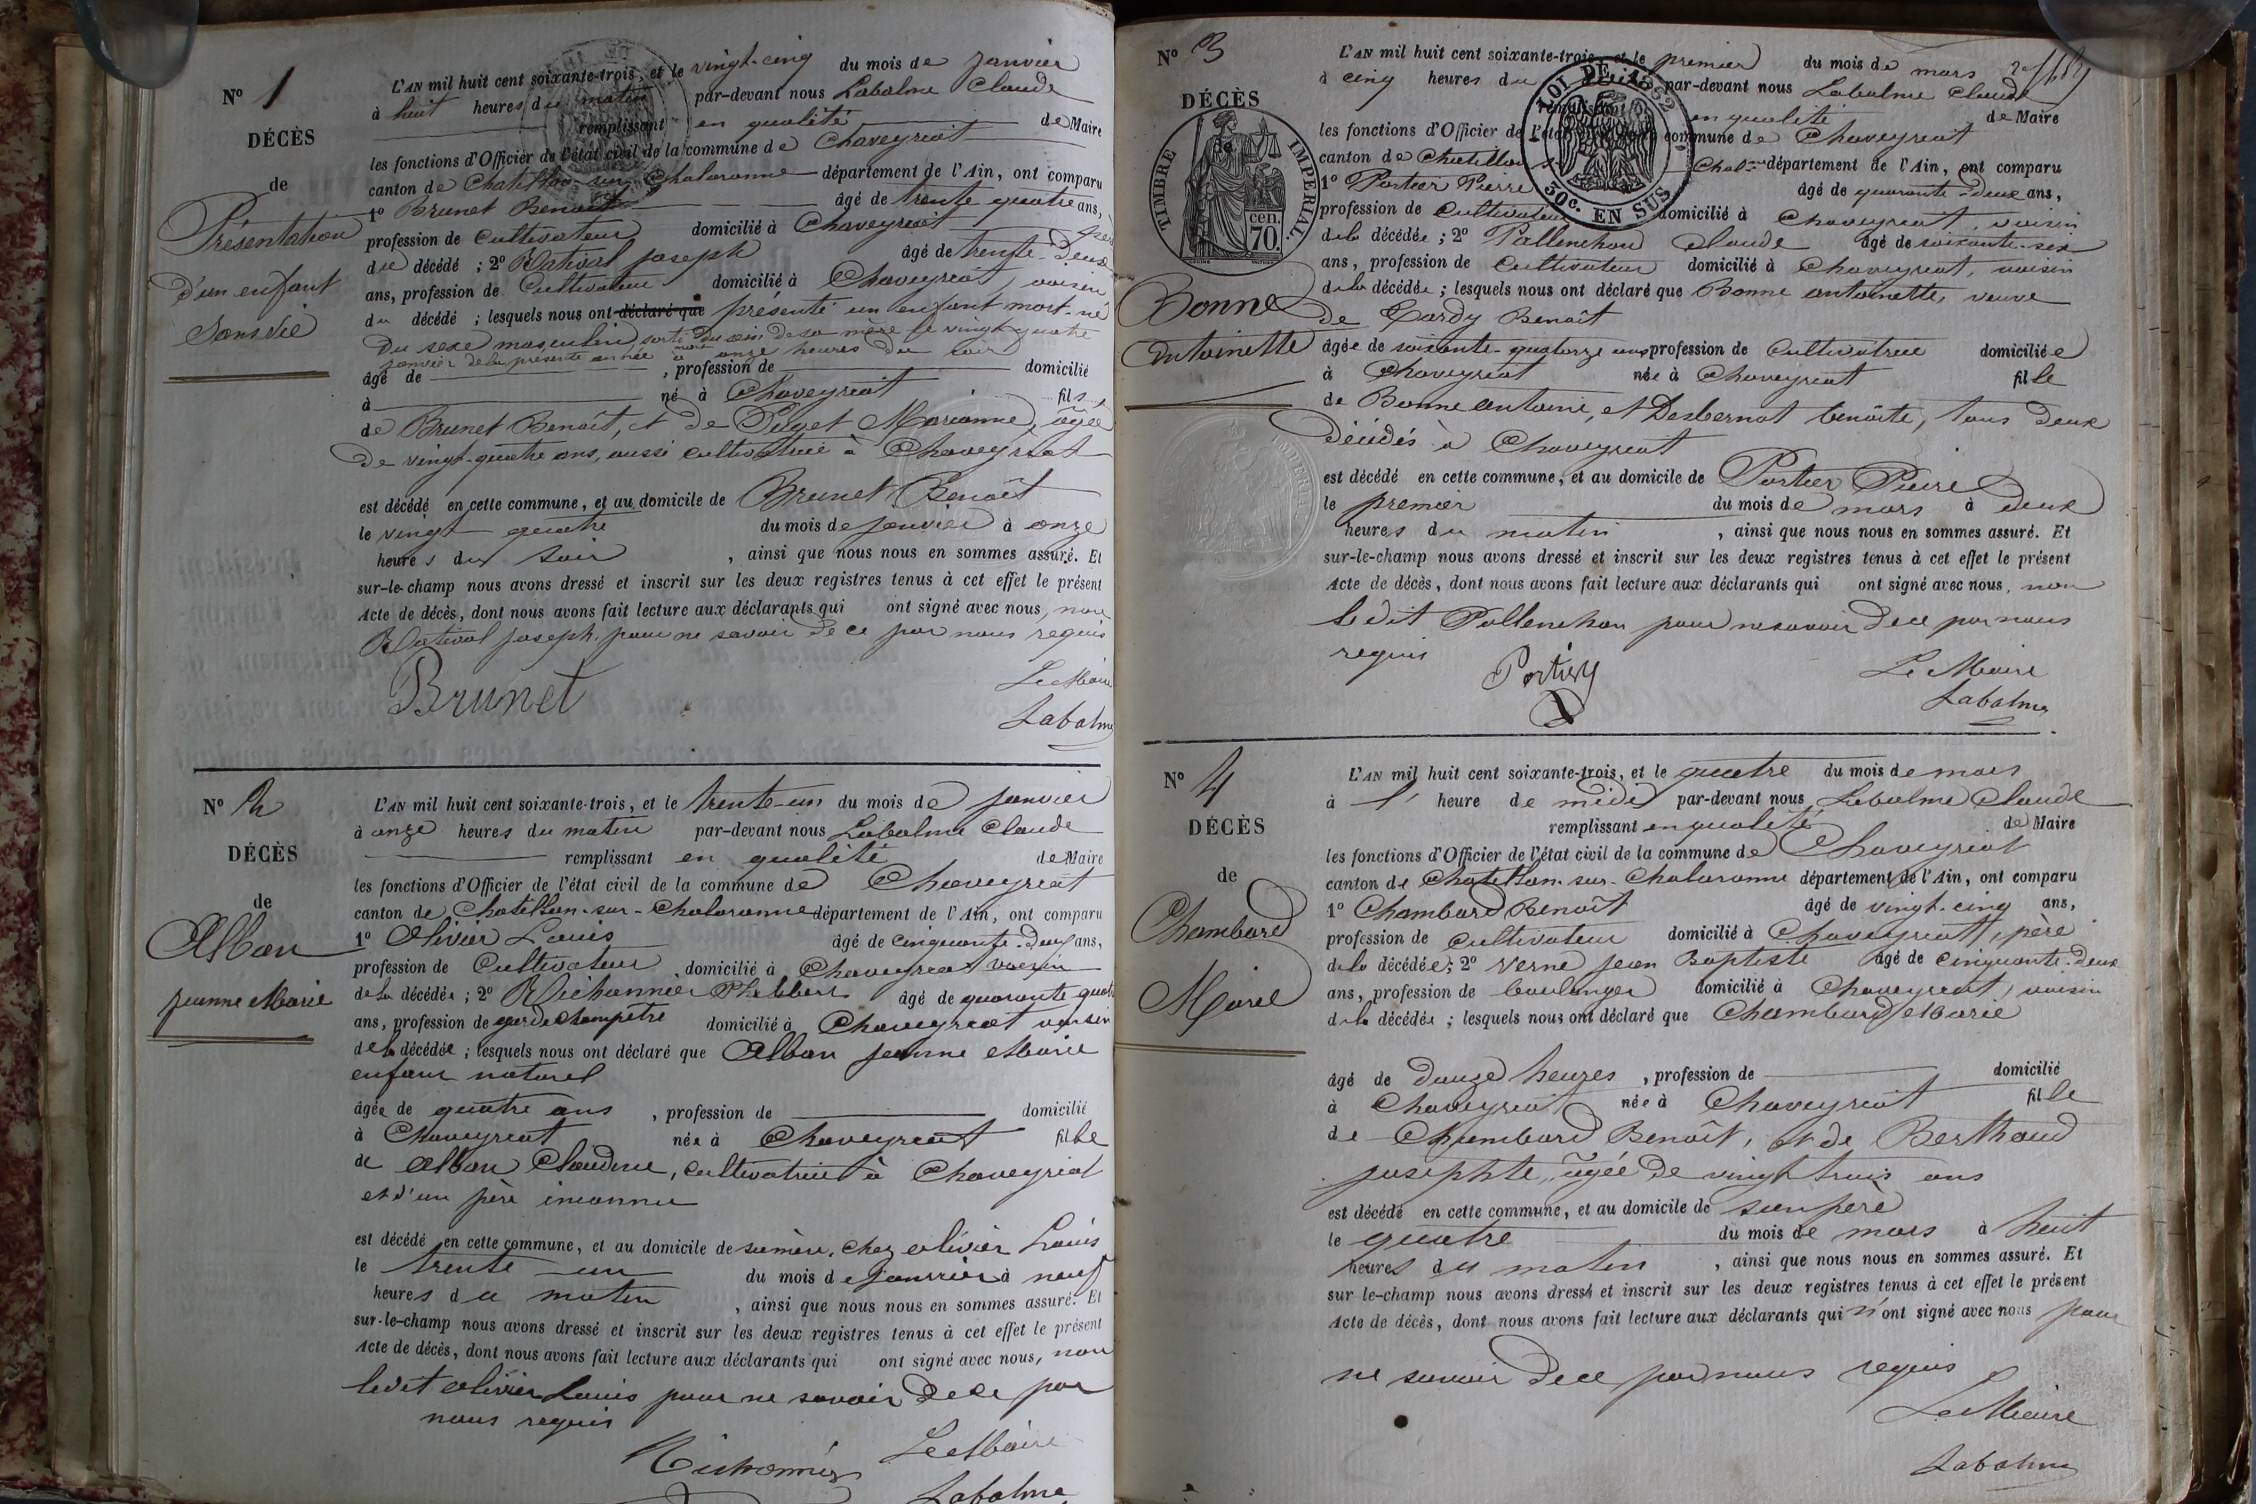 N° 1
DÉCÈS
de
Présentation
d'un enfant
sans vie
L'AN mil huit cent soixante-trois, et le vingt-cinq du mois de janvier
à huit heures du matin par-devant nous Labalme Claude
remplissant en qualité de Maire
les fonctions d'Officier de l'état civil de la commune de Chaveyriat
canton de Chatillon-sur-Chalaronne département de l'Ain, ont comparu
1° Brunet Benoit âgé de trente quatre ans,
profession de Cultivateur domicilié à Chaveyriat père
du décédé ; 2° Ratival joseph âgé de trente-deux
ans, profession de Cultivateur domicilié à Chaveyriat, voisin
du décédé ; lesquels nous ont déclaré que présenté un enfant mort-né
du sexe masculin, sorti du sein de sa mère le vingt quatre
janvier de la présente année à onze heures du soir
âgé de , profession de domicilié
à né à Chaveyriat fils
de Brunet Benoît, et de Puget Marianne, âgée
de vingt-quatre ans, aussi cultivatrice à Chaveyriat
est décédé en cette commune, et au domicile de Brunet Benoît
le vingt quatre du mois de janvier à onze
heures du soir , ainsi que nous nous en sommes assuré. Et
sur-le-champ nous avons dressé et inscrit sur les deux registres tenus à cet effet le présent
Acte de décès, dont nous avons fait lecture aux déclarants qui ont signé avec nous, non
Ratival joseph, pour ne savoir de ce par nous requis
Brunet
Le Maire
Labalme
N° 2
DÉCÈS
de
Alban
jeanne Marie
L'AN mil huit cent soixante-trois, et le trente-un du mois de janvier
à onze heures du matin par-devant nous Labalme Claude
remplissant en qualité de Maire
les fonctions d'Officier de l'état civil de la commune de Chaveyriat
canton de Chatillon-sur-Chalaronne département de l'Ain, ont comparu
1° Olivier Louis âgé de cinquante-deux ans,
profession de Cultivateur domicilié à Chaveyriat voisin
de la décédée ; 2° Michonnier Philibert âgé de quarante quatre
ans, profession de garde champetre domicilié à Chaveyriat voisin
de la décédée ; lesquels nous ont déclaré que Alban jeanne Marie
enfant naturel
âgée de quatre ans , profession de domicilié
à Chaveyriat née à Chaveyriat fille
de Alban Claudine, cultivatrice à Chaveyriat
et d'un père inconnu
est décédé en cette commune, et au domicile de sa mère, chez Olivier Louis
le trente un du mois de janvier à neuf
heures du matin , ainsi que nous nous en sommes assuré. Et
sur-le-champ nous avons dressé et inscrit sur les deux registres tenus à cet effet le présent
Acte de décès, dont nous avons fait lecture aux déclarants qui ont signé avec nous, non
ledit Olivier Louis pour ne savoir de ce par
nous requis
Michonnier
Le Maire
Labalme
N° 3
DÉCÈS
de
TIMBRE IMPERIAL
70 cen.
LOI DE 1862
30c. EN SUS
Bonne
Antoinette
L'AN mil huit cent soixante-trois, et le premier du mois de mars
à cinq heures du par-devant nous Labalme Claude
remplissant en qualité de Maire
les fonctions d'Officier de l'état civil de la commune de Chaveyriat
canton de Chatillon s Chal département de l'Ain, ont comparu
1° Portier Pierre âgé de quarante-deux ans,
profession de Cultivateur domicilié à Chaveyriat, voisin
de la décédée ; 2° Pallenchon Claude âgé de soixante-six
ans, profession de Cultivateur domicilié à Chaveyriat, voisin
de la décédée ; lesquels nous ont déclaré que Bonne antoinette, veuve
de Cordy Benoît
âgée de soixante-quatorze ans profession de Cultivatrice domiciliée
à Chaveyriat née à Chaveyriat fille
de Bonne antoine, et Desbernat benoite, tous deux
décédés à Chaveyriat
est décédé en cette commune, et au domicile de Portier Pierre
le premier du mois de mars à deux
heures du matin , ainsi que nous nous en sommes assuré. Et
sur-le-champ nous avons dressé et inscrit sur les deux registres tenus à cet effet le présent
Acte de décès, dont nous avons fait lecture aux déclarants qui ont signé avec nous, non
ledit Pallenchon pour ne savoir de ce par nous
requis
Portier
Le Maire
Labalme
N° 4
DÉCÈS
de
Chambard
Marie
L'AN mil huit cent soixante-trois, et le quatre du mois de mars
à l' heure de midi par-devant nous Labalme Claude
remplissant en qualité de Maire
les fonctions d'Officier de l'état civil de la commune de Chaveyriat
canton de Chatillon-sur-Chalaronne département de l'Ain, ont comparu
1° Chambard Benoît âgé de vingt-cinq ans,
profession de Cultivateur domicilié à Chaveyriat, père
de la décédée; 2° Verne jean Baptiste âgé de cinquante-deux
ans, profession de boulanger domicilié à Chaveyriat, voisin
de la décédée ; lesquels nous ont déclaré que Chambard Marie
âgé de douze heures , profession de domicilié
à Chaveyriat née à Chaveyriat fille
de Chambard Benoît, et de Berthaud
josephte, âgée de vingt trois ans
est décédé en cette commune, et au domicile de son père
le quatre du mois de mars à huit
heures du matin , ainsi que nous nous en sommes assuré. Et
sur-le-champ nous avons dressé et inscrit sur les deux registres tenus à cet effet le présent
Acte de décès, dont nous avons fait lecture aux déclarants qui n'ont signé avec nous pour
ne savoir de ce par nous requis
Le Maire
Labalme